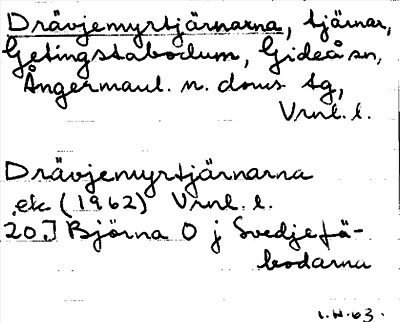 Drävjemyrtjärnarna, tjärnar,
Getingstabodum, Gideå sn,
Ångermanl. n. doms tg,
Vrnl. l.
Drävjemyrtjärnarna
ek. (1962) Vrnl. l.
20J Björna O j Svedjefä-
bodarna
1.H.63.